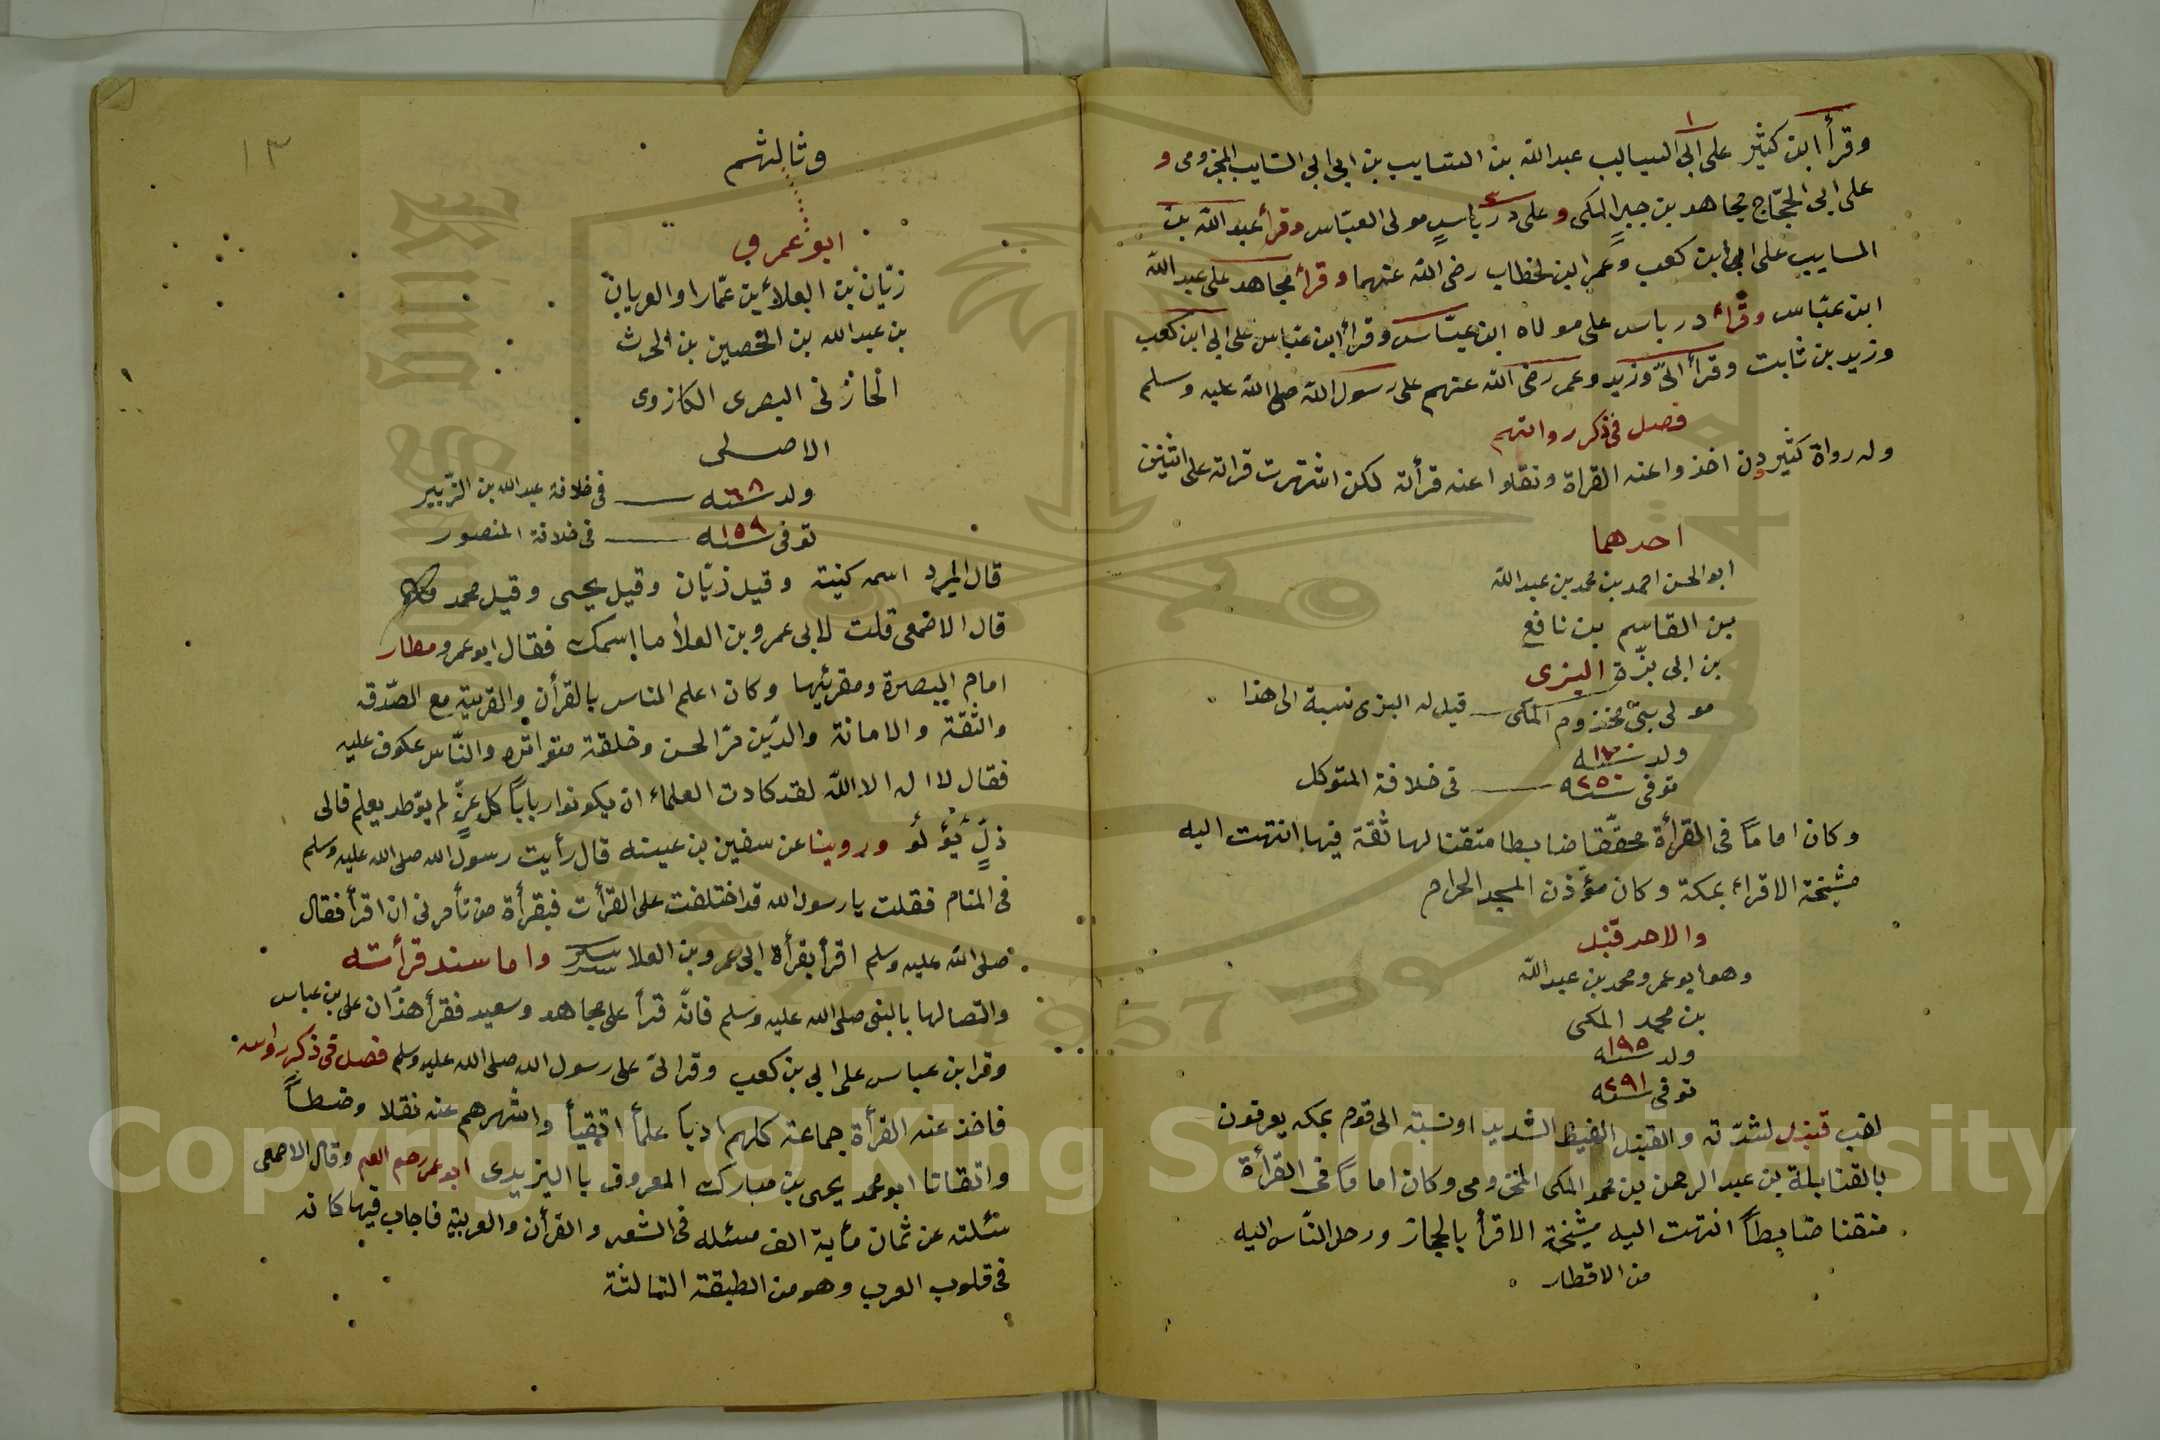 وقرأ ابن كثير على ابى السايب عبد الله بن السايب بن ابى ابى السايب المخزومى و
على ابى الحجّاج مجاهد بن جبر المكى وعلى درباس مولى العبّاس وقرأ عبد الله بن
السايب على ابى ابن كعب وعمر ابن لخطاب رضى الله عنهما وقراء مجاهد على عبد الله
ابن عبّاس وقراء درباس على مولاه ابن عبّاس وقرأ ابن عبّاس على ابى ابن كعب
وزيد بن ثابت وقرأ ابىّ وزيد وعمر رضى الله عنهم على رسول الله صلى الله عليه وسلم
فصل فى ذكر رواتهم
وله رواة كثيرون اخذوا عنه القراة ونقلوا عنه قرأته لكن اشتهرت قراته على اثنين
احدهما
ابو الحسن احمد بن محمد بن عبد الله
بن القاسم بن نافع
بن ابى بزّة البزى
مولى بنى مخزوم المكى قيل له البزى نسبة الى هذا
ولد سنه ١٧٠
توفى سنه ٢٥٠ فى خلافة المتوكل
وكان اماماً فى القرأة محقّقا ضابطا متقنا لها ثقة فيها انتهت اليه
مشيخة الاقراء بمكة وكان مؤذن المسجد الحرام
والاحد قنبل
وهو ابو عمرو محمد بن عبد الله
بن محمد المكى
ولد سنه ١٩٥
توفى سنه ٢٩١
لقب قنبل لشدّته والقنبل الغيظ الشديد او نسبته الى قوم بمكه يعرفون
بالقنابلة بن عبد الرحمن بن محمد المكى المخزومى وكان اماماً فى القرأة
متقنا ضابطاً انتهت اليه مشيخة الاقرأ بالحجاز ورحل النّاس اليه
من الاقطار
١٣
وثالثهم
ابو عمرو
زبّان بن العلاء بن عمّار او العريان
بن عبد الله بن الحصين بن الحرث
الخازنى البصرى الكازوى
الاصلى
ولد سنه ٦٨ فى خلافة عبد الله بن الزّبير
توفى سنه ١٥٩ فى خلافة المنصور
قال المبرد اسمه كنيته وقيل زبّان وقيل يحيى وقيل محمد
قال الاصمعى قلت لابى عمرو بن العلأ ما اسمك فقال ابو عمرو مطار
امام البصرة ومقريئها وكان اعلم الناس بالقرأن والعربية مع الصّدق
والثقة والامانة والدّين مرّ الحسن وخلقة متواتره والنّاس عكوف عليه
فقال لا اله الا الله لقد كادت العلماء ان يكونوا رباباً كل عزّ لم يوّطد بعلم فالى
ذلٍّ يؤلؤ وروينا عن سفين بن عيينه قال رأيت رسول الله صلى الله عليه وسلم
فى المنام فقلت يا رسول الله قد اختلفت على القرأت فبقرأة من تأمرنى ان اقرأ فقال
صلى الله عليه وسلم اقرأ بقرأة ابى عمرو بن العلا واما سند قرأته
واتصالها بالنبى صلى الله عليه وسلم فانّه قرأ على مجاهد وسعيد فقرأ هذان على بن عباس
وقرا بن عباس على ابى بن كعب وقرا ابىّ على رسول الله صلى الله عليه وسلم فصل فى ذكر
فاخذ عنه القرأة جماعة كلهم ادباً علمأ اتقيأ واشهرهم عنه نقلا وضبطاً
واتقانا ابو محمد يحيى بن مبارك المعروف با اليزيدى ابو عمر وقال الاصمعى
سئلته عن ثمان مأية الف مسئله فى الشعر والقرأن والعربيّه فاجاب فيها كانه
فى قلوب العرب وهو من الطبقة الثالثة
Copyright © King Saud University